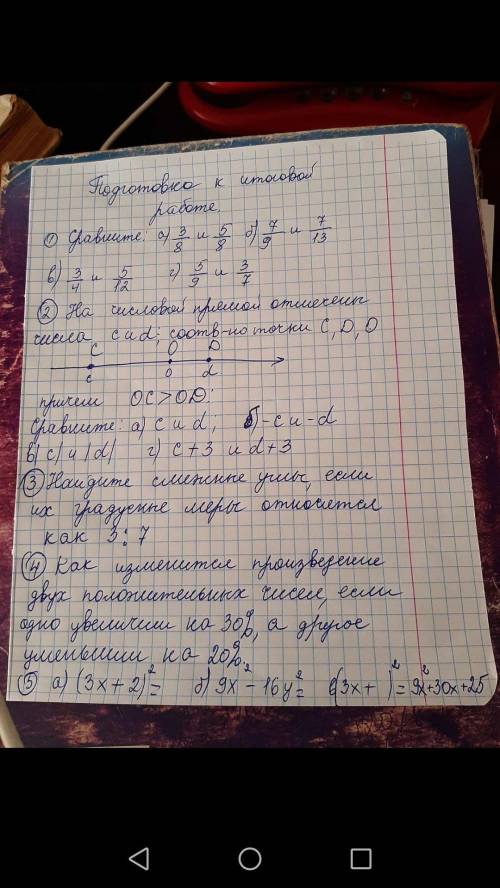 Подготовка к итоговой
работе.
① Сравните: а) 3/8 и 5/8 б) 7/9 и 7/13
в) 3/4 и 5/12 г) 5/9 и 3/7
② На числовой прямой отмечены
числа c и d; соотв-но точки C, D, O
C O D
c 0 d
причем OC > OD:
Сравните: а) c и d; б) -c и -d
в) |c| и |d| г) c+3 и d+3
③ Найдите смежные углы, если
их градусные меры относятся
как 3:7
④ Как изменится произведение
двух положительных чисел, если
одно увеличим на 30%, а другое
уменьшим на 20%.
⑤ а) (3x+2)²= б) 9x²-16y²= в) (3x+ )²=9x²+30x+25